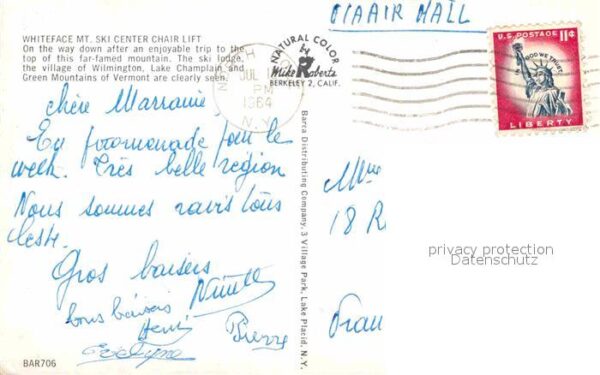 WHITEFACE MT. SKI CENTER CHAIR LIFT
On the way down after an enjoyable trip to the
top of this far-famed mountain. The ski lodge,
the village of Wilmington, Lake Champlain and
Green Mountains of Vermont are clearly seen.
NATURAL COLOR
by
Mike Roberts
BERKELEY 2, CALIF.
VIA AIR MAIL
U.S. POSTAGE 11¢
IN GOD WE TRUST
LIBERTY
JUL
PM
1964
N.Y.
chère Marraine,
En promonade pour le
week. Très belle région
Nous sommes ravis tous
Gros baisers
bons baisers
Henri
Pierre
Evelyne
Barca Distributing Company, 3 Village Park, Lake Placid, N.Y.
Mme
18 R
Fran
privacy protection
Datenschutz
BAR706